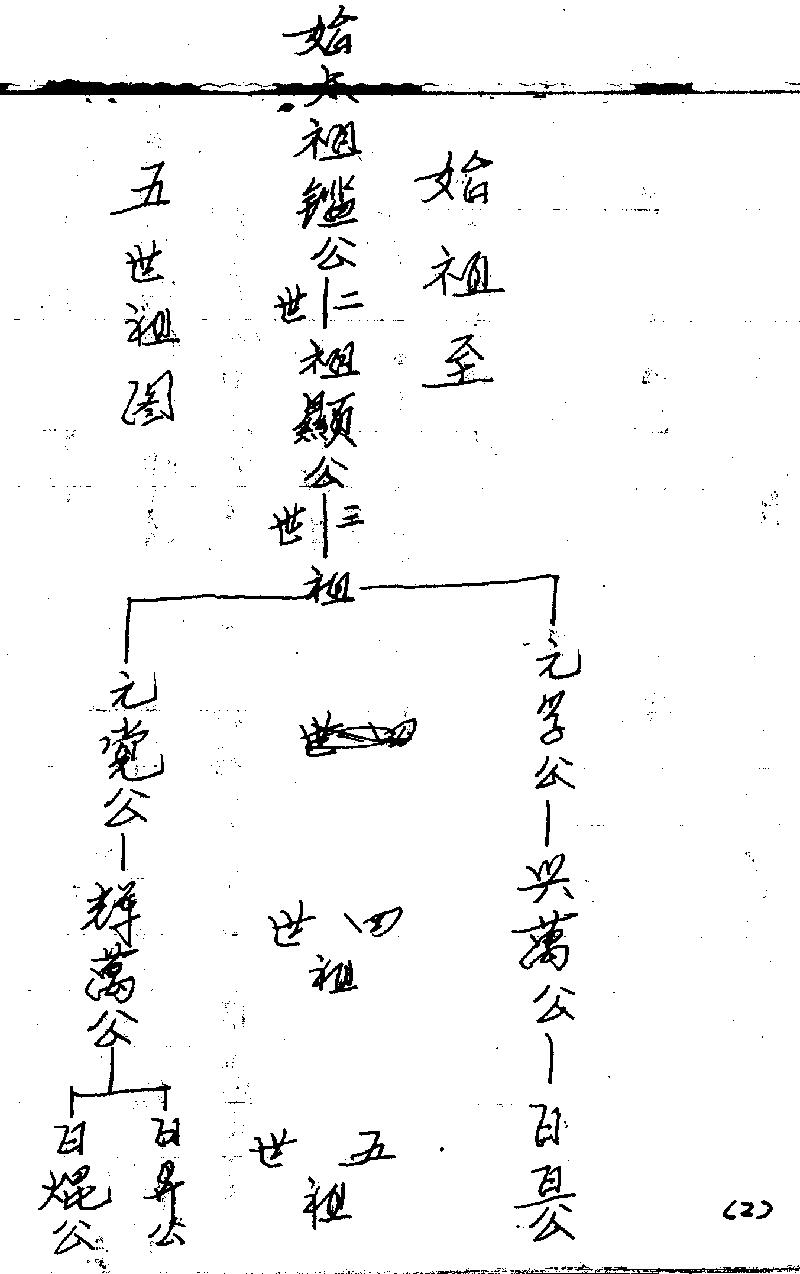 始祖至
五世祖图
始太祖鑑公
二世
祖顯公
三世
祖
元孚公
元党公
四世
祖
興萬公
輝萬公
五世
祖
百公
百昇公
百焜公
(2)